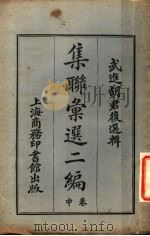 武進胡君復選輯
集聯彙選二編
卷申
上海商務印書館出版